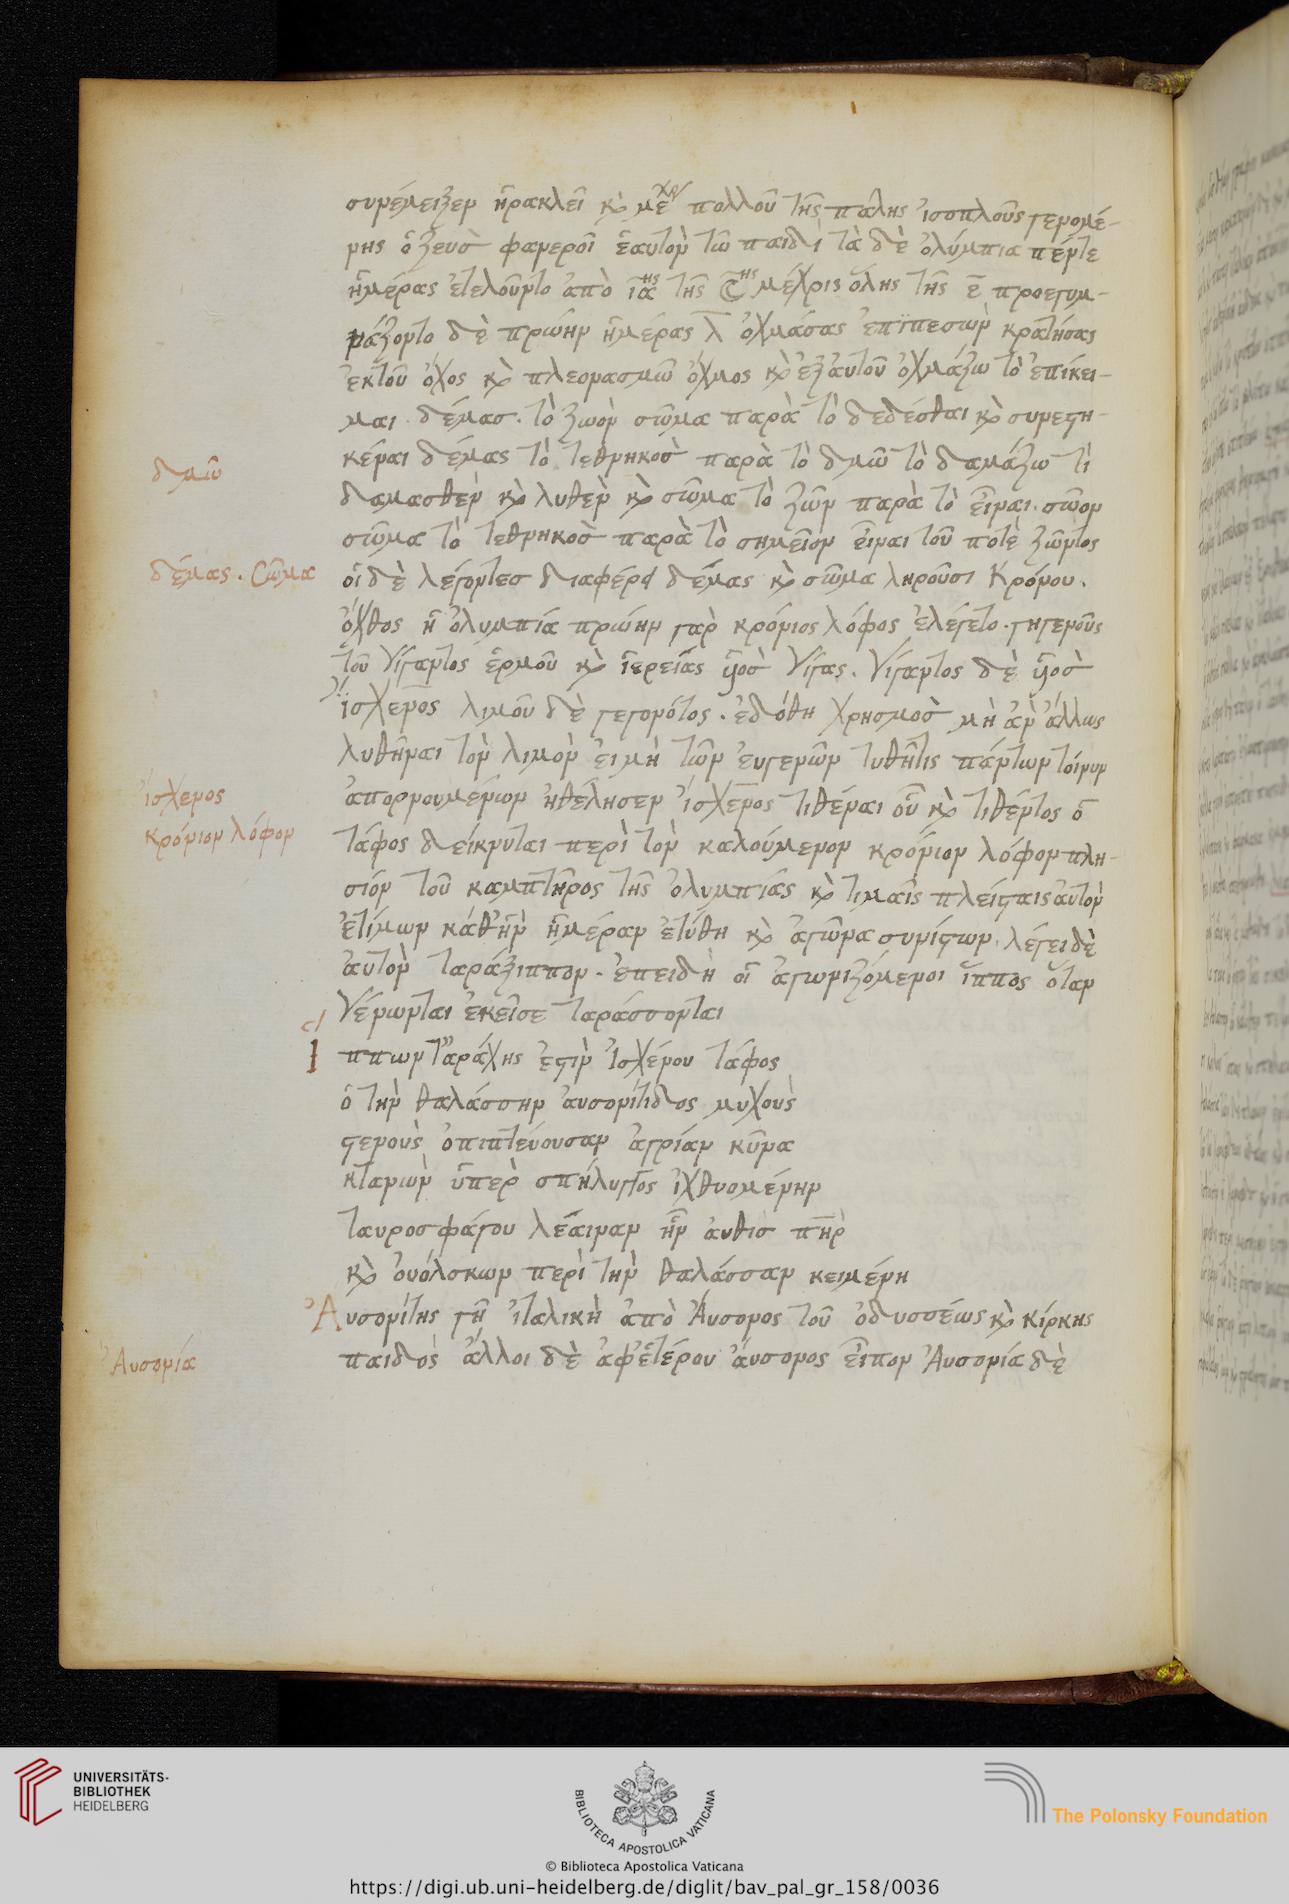 συνέμειξεν ἡρακλεῖ κὴ μέχρι πολλοῦ τῆς πάλης ἰσοπλοῦς γενομέ-
νης ὁ ζευσ φανεροῖ ἑαυτὸν τῶ παιδὶ τὰ δὲ ὀλύμπια πέντε
ἡμέρας ἐτελοῦντο ἀπὸ ια̅ης τῆς μέχρις ὅλης τῆς ε̅ προεγυμ-
νάζοντο δὲ πρώην ἡμέρας λ̅ ὀχμάσας ἐπιπεσὼν κρατήσας
ἐκτοῦ ὄχος κὴ πλεονασμῶ ὄχμος κὴ ἐξαυτοῦ ὀχμάζω τὸ ἐπίκει-
μαι· δέμασ· τὸ ζωὸν σῶμα παρὰ τὸ δεδέσθαι κὴ συνεστη-
κέναι δέμας τὸ τεθνηκοσ παρὰ τὸ δμῶ τὸ δαμάζω τὶ
δμῶ
δαμασθὲν κὴ λυθὲν κὴ σῶμα τὸ ζῶν παρὰ τὸ εἶναι· σῶον
σῶμα τὸ τεθνηκοσ παρὰ τὸ σημεῖον εἶναι τοῦ ποτὲ ζῶντος
δέμας· Σῶμα
οἱ δὲ λέγοντεσ διαφέρειν δέμας κὴ σῶμα ληροῦσι Κρόνου·
ὄχθος ἡ ὀλυμπία πρώην γαρ κρόνιος λόφος ἐλέγετο· γηγενοῦς
τοῦ Γίγαντος ἑρμοῦ κὴ ἱερείας ὑιοσ Γίγας· Γίγαντος δὲ ὑιοσ
ἴσχενος λιμοῦ δὲ γεγονότος· ἐδόθη χρησμοσ μὴ ἀν ἄλλως
λυθῆναι τὸν λιμὸν εἰ μὴ τῶν ἐυγενῶν τυθῆτις πάντων τοίνυν
ἴσχενος
ἀπορρουμένων ἠθέλησεν ἴσχενος τιθέναι οὗ κὴ τιθέντος ὁ
κρόνιον λόφον
τάφος δείκνυται περὶ τὸν καλούμενον κρόνιον λόφον πλη-
σιόν τοῦ καμπτῆρος τῆς ὀλυμπίας κὴ τιμαῖς πλείσταις ἀυτὸν
ἐτίμων κάθ' ἣν ἡμέραν ἐτύθη κὴ ἀγῶνα συνίστων· λέγει δὲ
ἀυτὸν ταράξιππον· ἐπειδὴ οἱ ἀγωνιζόμενοι ἵππος ὅταν
Γένωνται ἐκεῖσε ταράσσονται
Ἵππων Ταράχης ἐστὶν Ἰσχένου τάφος
ὁ τὴν θαλάσσην ἀυσονίτιδος μυχοὺς
στενοὺς ὀπιπτεύουσαν ἀγρίαν κύνα
κτανὼν ὑπὲρ σπήλυγγος ἰχθυομένην
ταυροσφάγου λέαιναν ἣν ἀυθισ π̅ὴρ
κὴ ὀυόλσκων περὶ τὴν θαλάσσαν κειμένη
Ἀυσονίτης γῆ ἰταλικὴ ἀπὸ Ἄυσονος τοῦ ὀδυσσέως κὴ κίρκης
Ἀυσονία
παιδὸς ἄλλοι δὲ ἀφ' ἑτέρου ἄυσονος εἶπον Ἀυσονία δὲ
UNIVERSITÄTS-
BIBLIOTHEK
HEIDELBERG
BIBLIOTECA APOSTOLICA VATICANA
The Polonsky Foundation
© Biblioteca Apostolica Vaticana
https://digi.ub.uni-heidelberg.de/diglit/bav_pal_gr_158/0036